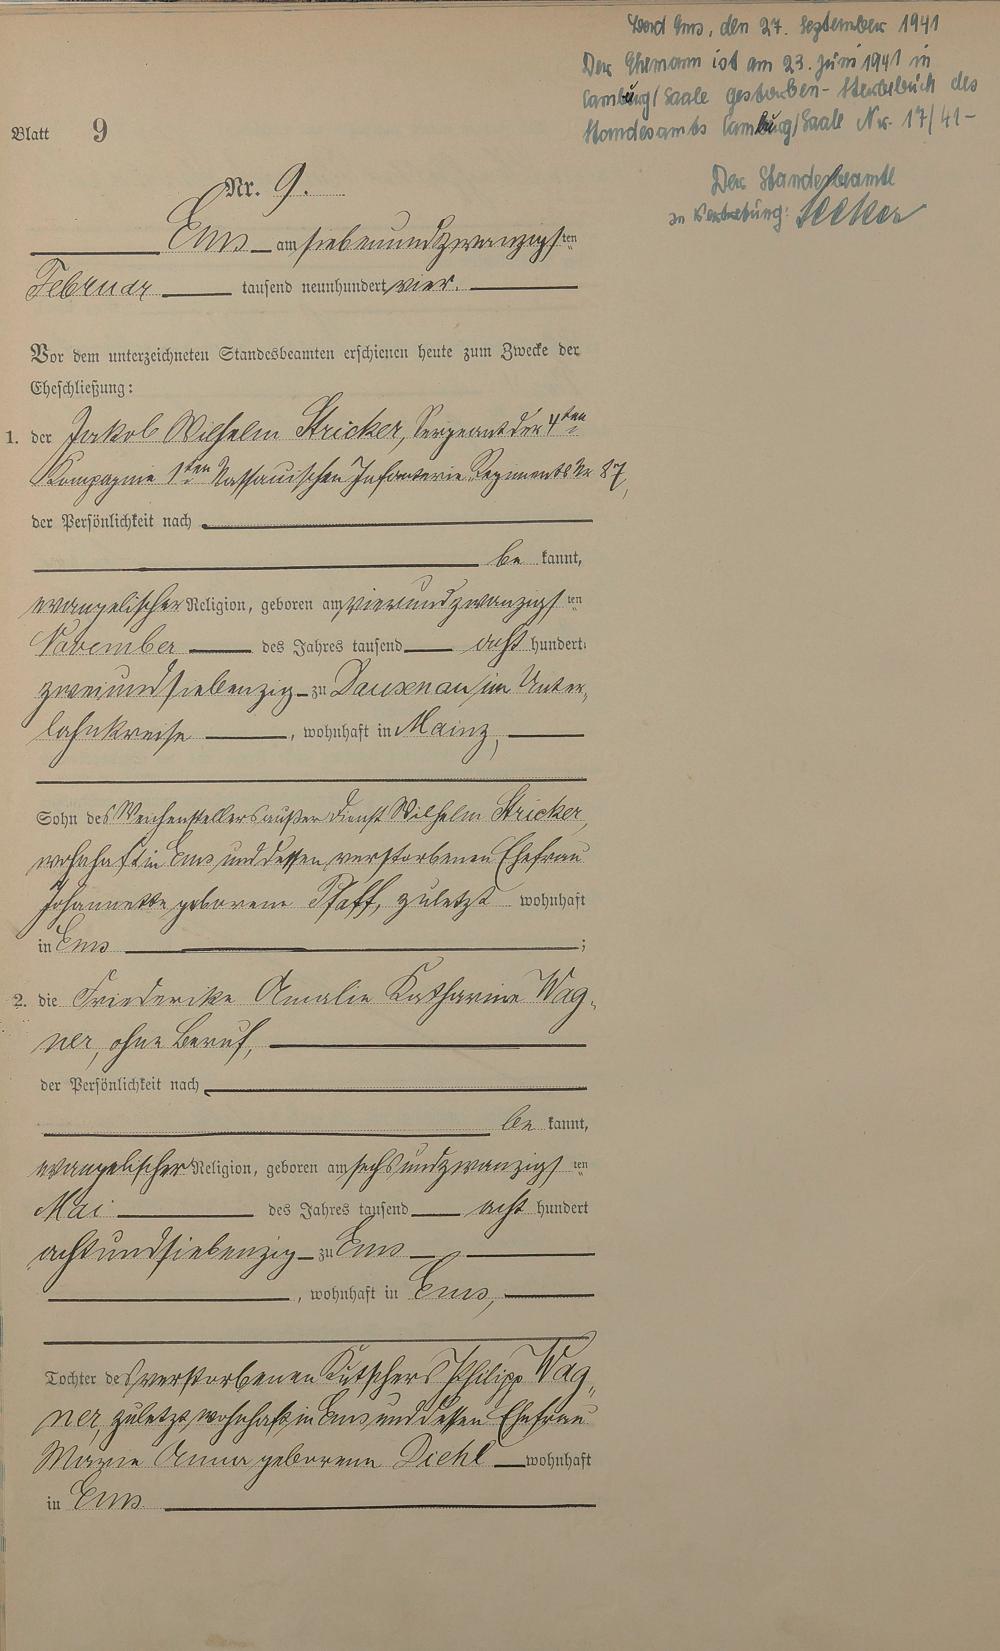 Bad Ems, den 27. September 1941
Der Ehemann ist am 23. Juni 1941 in
Camburg/Saale gestorben - Sterbebuch des
Standesamts Camburg/Saale Nr. 17/41 -
Der Standesbeamte
in Vertretung:
Blatt 9
Nr. 9.
Ems am siebenundzwanzigsten
Februar tausend neunhundert vier.
Vor dem unterzeichneten Standesbeamten erschienen heute zum Zwecke der
Eheschließung:
1. der Jakob Wilhelm Stricker, Sergeant der 4ten
Kompagnie 1ten Nassauischen Infanterie-Regiments Nr 87,
der Persönlichkeit nach
be kannt,
evangelischer Religion, geboren am vierundzwanzigsten
November des Jahres tausend acht hundert
zweiundsiebenzig zu Dausenau im Unter-
lahnkreise, wohnhaft in Mainz,
Sohn des Weichenstellers außer Dienst Wilhelm Stricker,
wohnhaft in Ems und dessen verstorbenen Ehefrau
Johannette geborene Pfaff, zuletzt wohnhaft
in Ems ;
2. die Friederike Amalie Katharine Wag-
ner, ohne Beruf,
der Persönlichkeit nach
be kannt,
evangelischer Religion, geboren am sechsundzwanzigsten
Mai des Jahres tausend acht hundert
achtundsiebenzig zu Ems
, wohnhaft in Ems,
Tochter des verstorbenen Kutschers Philipp Wag-
ner, zuletzt wohnhaft in Ems und dessen Ehefrau
Marie Anna geborene Diehl wohnhaft
in Ems